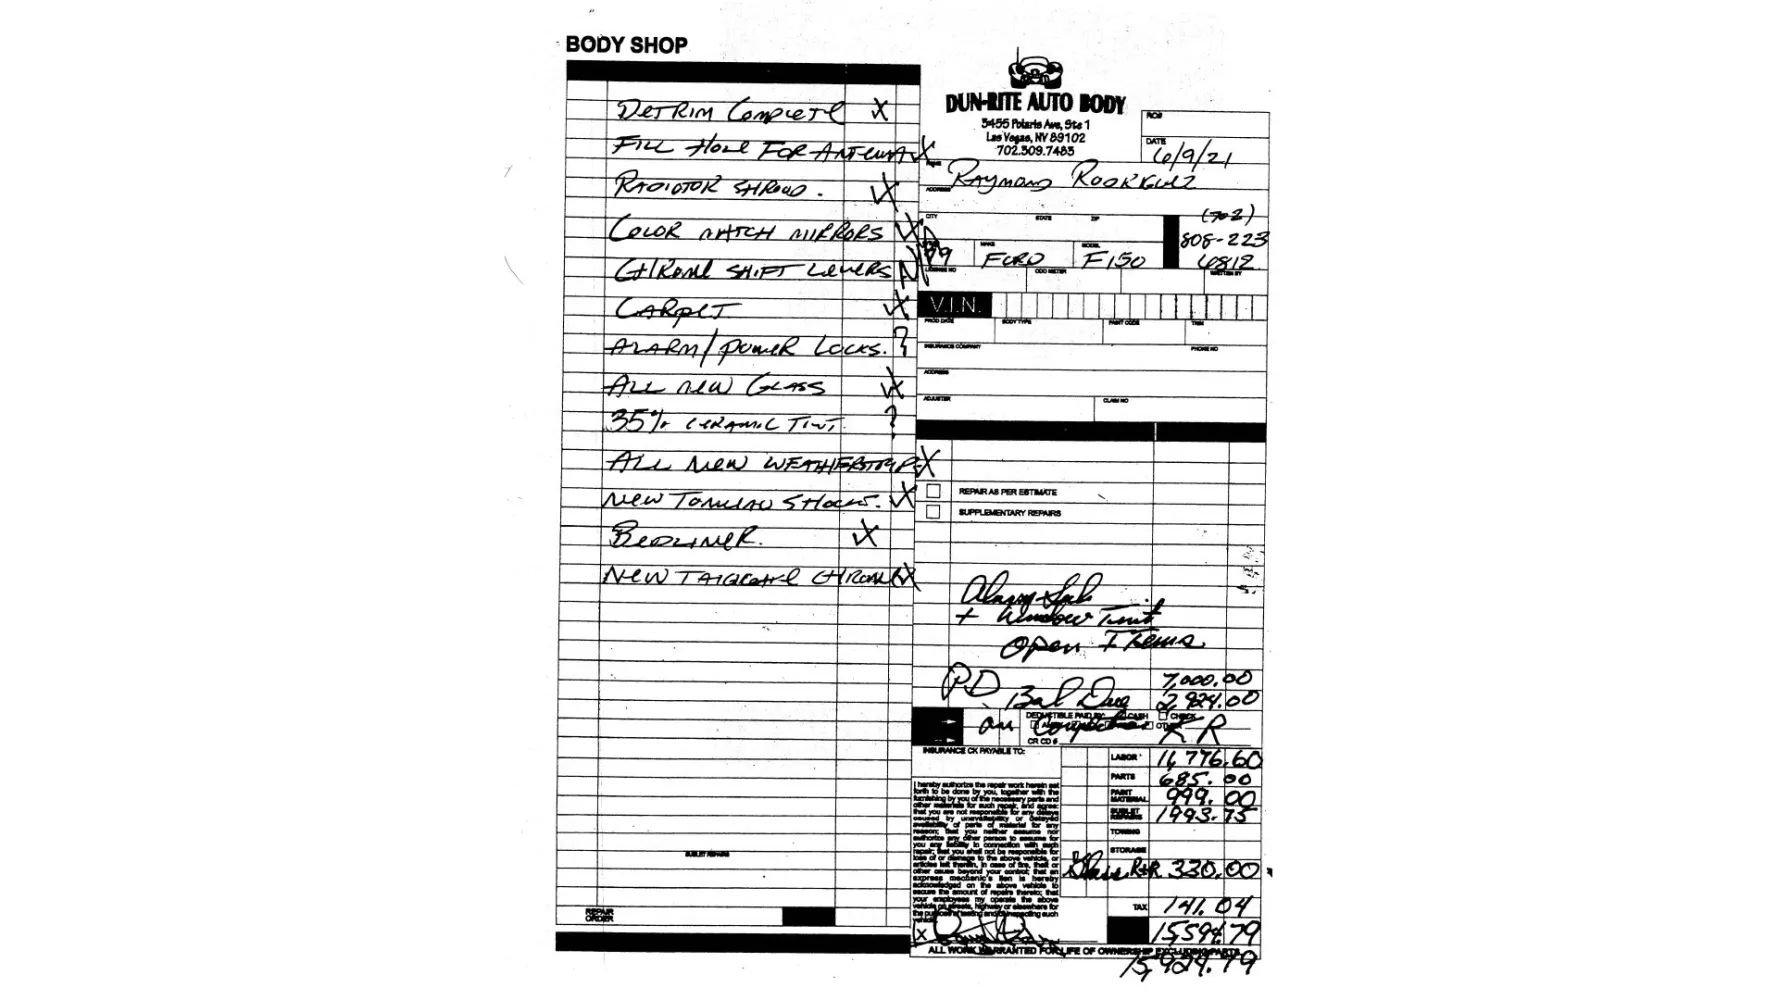 BODY SHOP
DETRIM COMPLETE X
FILL HOLE FOR ANTENNA X
RADIATOR SHROUD. X
COLOR MATCH MIRRORS X
CHROME SHIFT LEVERS
CARPET X
ALARM/POWER LOCKS. ?
ALL NEW GLASS X
35% CERAMIC TINT. ?
ALL NEW WEATHERSTRIP X
NEW TONNEAU SHOCKS. X
BEDLINER. X
NEW TAILGATE CHROME X
SUBLET REPAIRS
REPAIR
ORDER
DUN-RITE AUTO BODY
5455 Polaris Ave, Ste 1
Las Vegas, NV 89102
702.309.7483
RO#
DATE
6/9/21
NAME
RAYMOND RODRIGUEZ
ADDRESS
CITY STATE ZIP
(702)
808-223
6812
99 MAKE FORD MODEL F150
LICENSE NO ODO METER WRITTEN BY
V.I.N.
PROD DATE BODY TYPE PAINT CODE TRIM
INSURANCE COMPANY PHONE NO
ADDRESS
ADJUSTER CLAIM NO
REPAIR AS PER ESTIMATE
SUPPLEMENTARY REPAIRS
Alarm
+ Window Tint
Open Items
PD 7,000.00
Bal Due 2,924.00
DEDUCTIBLE PAID BY: CASH CHECK
on Completion RR
CR CD #
INSURANCE CK PAYABLE TO:
I hereby authorize the repair work herein set
forth to be done by you, together with the
furnishing by you of the necessary parts and
other materials for such repair, and agree:
that you are not responsible for any delays
caused by unavailability or delayed
availability of parts of material for any
reason; that you neither assume nor
authorize any other person to assume for
you any liability in connection with such
repair; that you shall not be responsible for
loss of or damage to the above vehicle, or
articles left therein, in case of fire, theft or
other cause beyond your control; that an
express mechanic's lien is hereby
acknowledged on the above vehicle to
secure the amount of repairs thereto; that
your employees my operate the above
vehicle on streets, highway or elsewhere for
the purpose of testing and/or inspecting such
vehicle.
LABOR 11,776.60
PARTS 685.00
PAINT MATERIAL 999.00
SUBLET REPAIRS 1993.75
TOWING
STORAGE
Glass R+R 330.00
TAX 141.04
X
15,594.79
ALL WORK WARRANTED FOR LIFE OF OWNERSHIP EXCLUDING PARTS
15,924.79